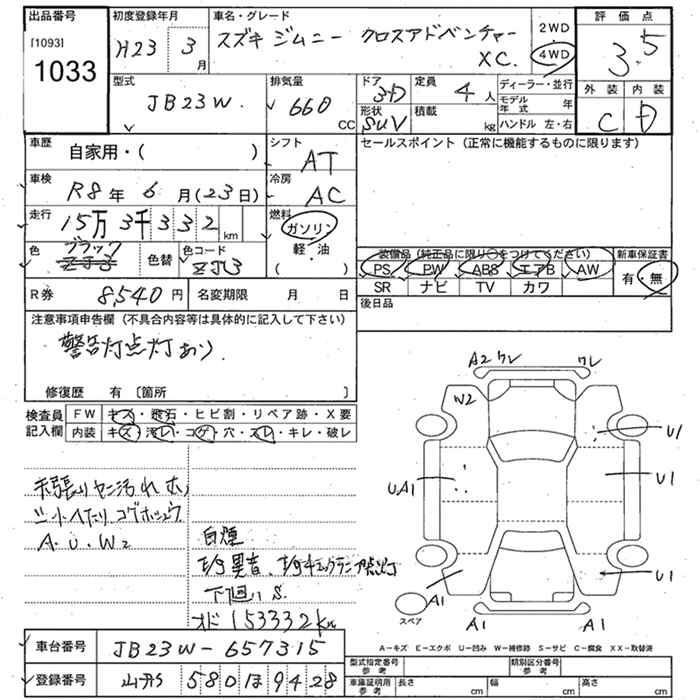 出品番号
[1093]
1033
初度登録年月
H23 3月
車名・グレード
スズキ ジムニー クロスアドベンチャー
XC.
2WD
4WD
評価点
3.5
外装 内装
C D
型式
JB23W.
排気量
660 CC
ドア
3D
形状
SUV
定員
4人
積載
kg
ディーラー・並行
モデル年式 年
ハンドル 左・右
車歴
自家用・( )
シフト
AT
セールスポイント (正常に機能するものに限ります)
車検
R8年 6月(23日)
冷房
AC
走行
15万3千332km
燃料
ガソリン
軽・油
( )
色
ブラック
ZJ3
色替
色コード
ZJ3
装備品(純正品に限り○をつけてください)
新車保証書
PS PW ABS エアB AW
有・無
SR ナビ TV カワ
R券 8,540円
名変期限 月 日
後日品
注意事項申告欄 (不具合内容等は具体的に記入して下さい)
警告灯点灯あり.
修復歴 有 〔箇所 〕
検査員記入欄
FW キズ・飛石・ヒビ割・リペア跡・X要
内装 キズ・汚レ・コゲ・穴・スレ・キレ・破レ
天張りヤニ汚れ
シートへたり
A.U.W2
白煙
異音.
下回りS.
オド153332km
A2 ワレ
ワレ
W2
U1
UA1
U1
A1
U1
A1
A1
スペア
A-キズ E-エクボ U-凹み W-補修跡 S-サビ C-腐食 XX-取替済
車台番号 JB23W-657315
登録番号 山形 580 ほ 9428
型式指定番号
参考
類別区分番号
参考
車庫証明用
参考
長さ cm
幅 cm
高さ cm